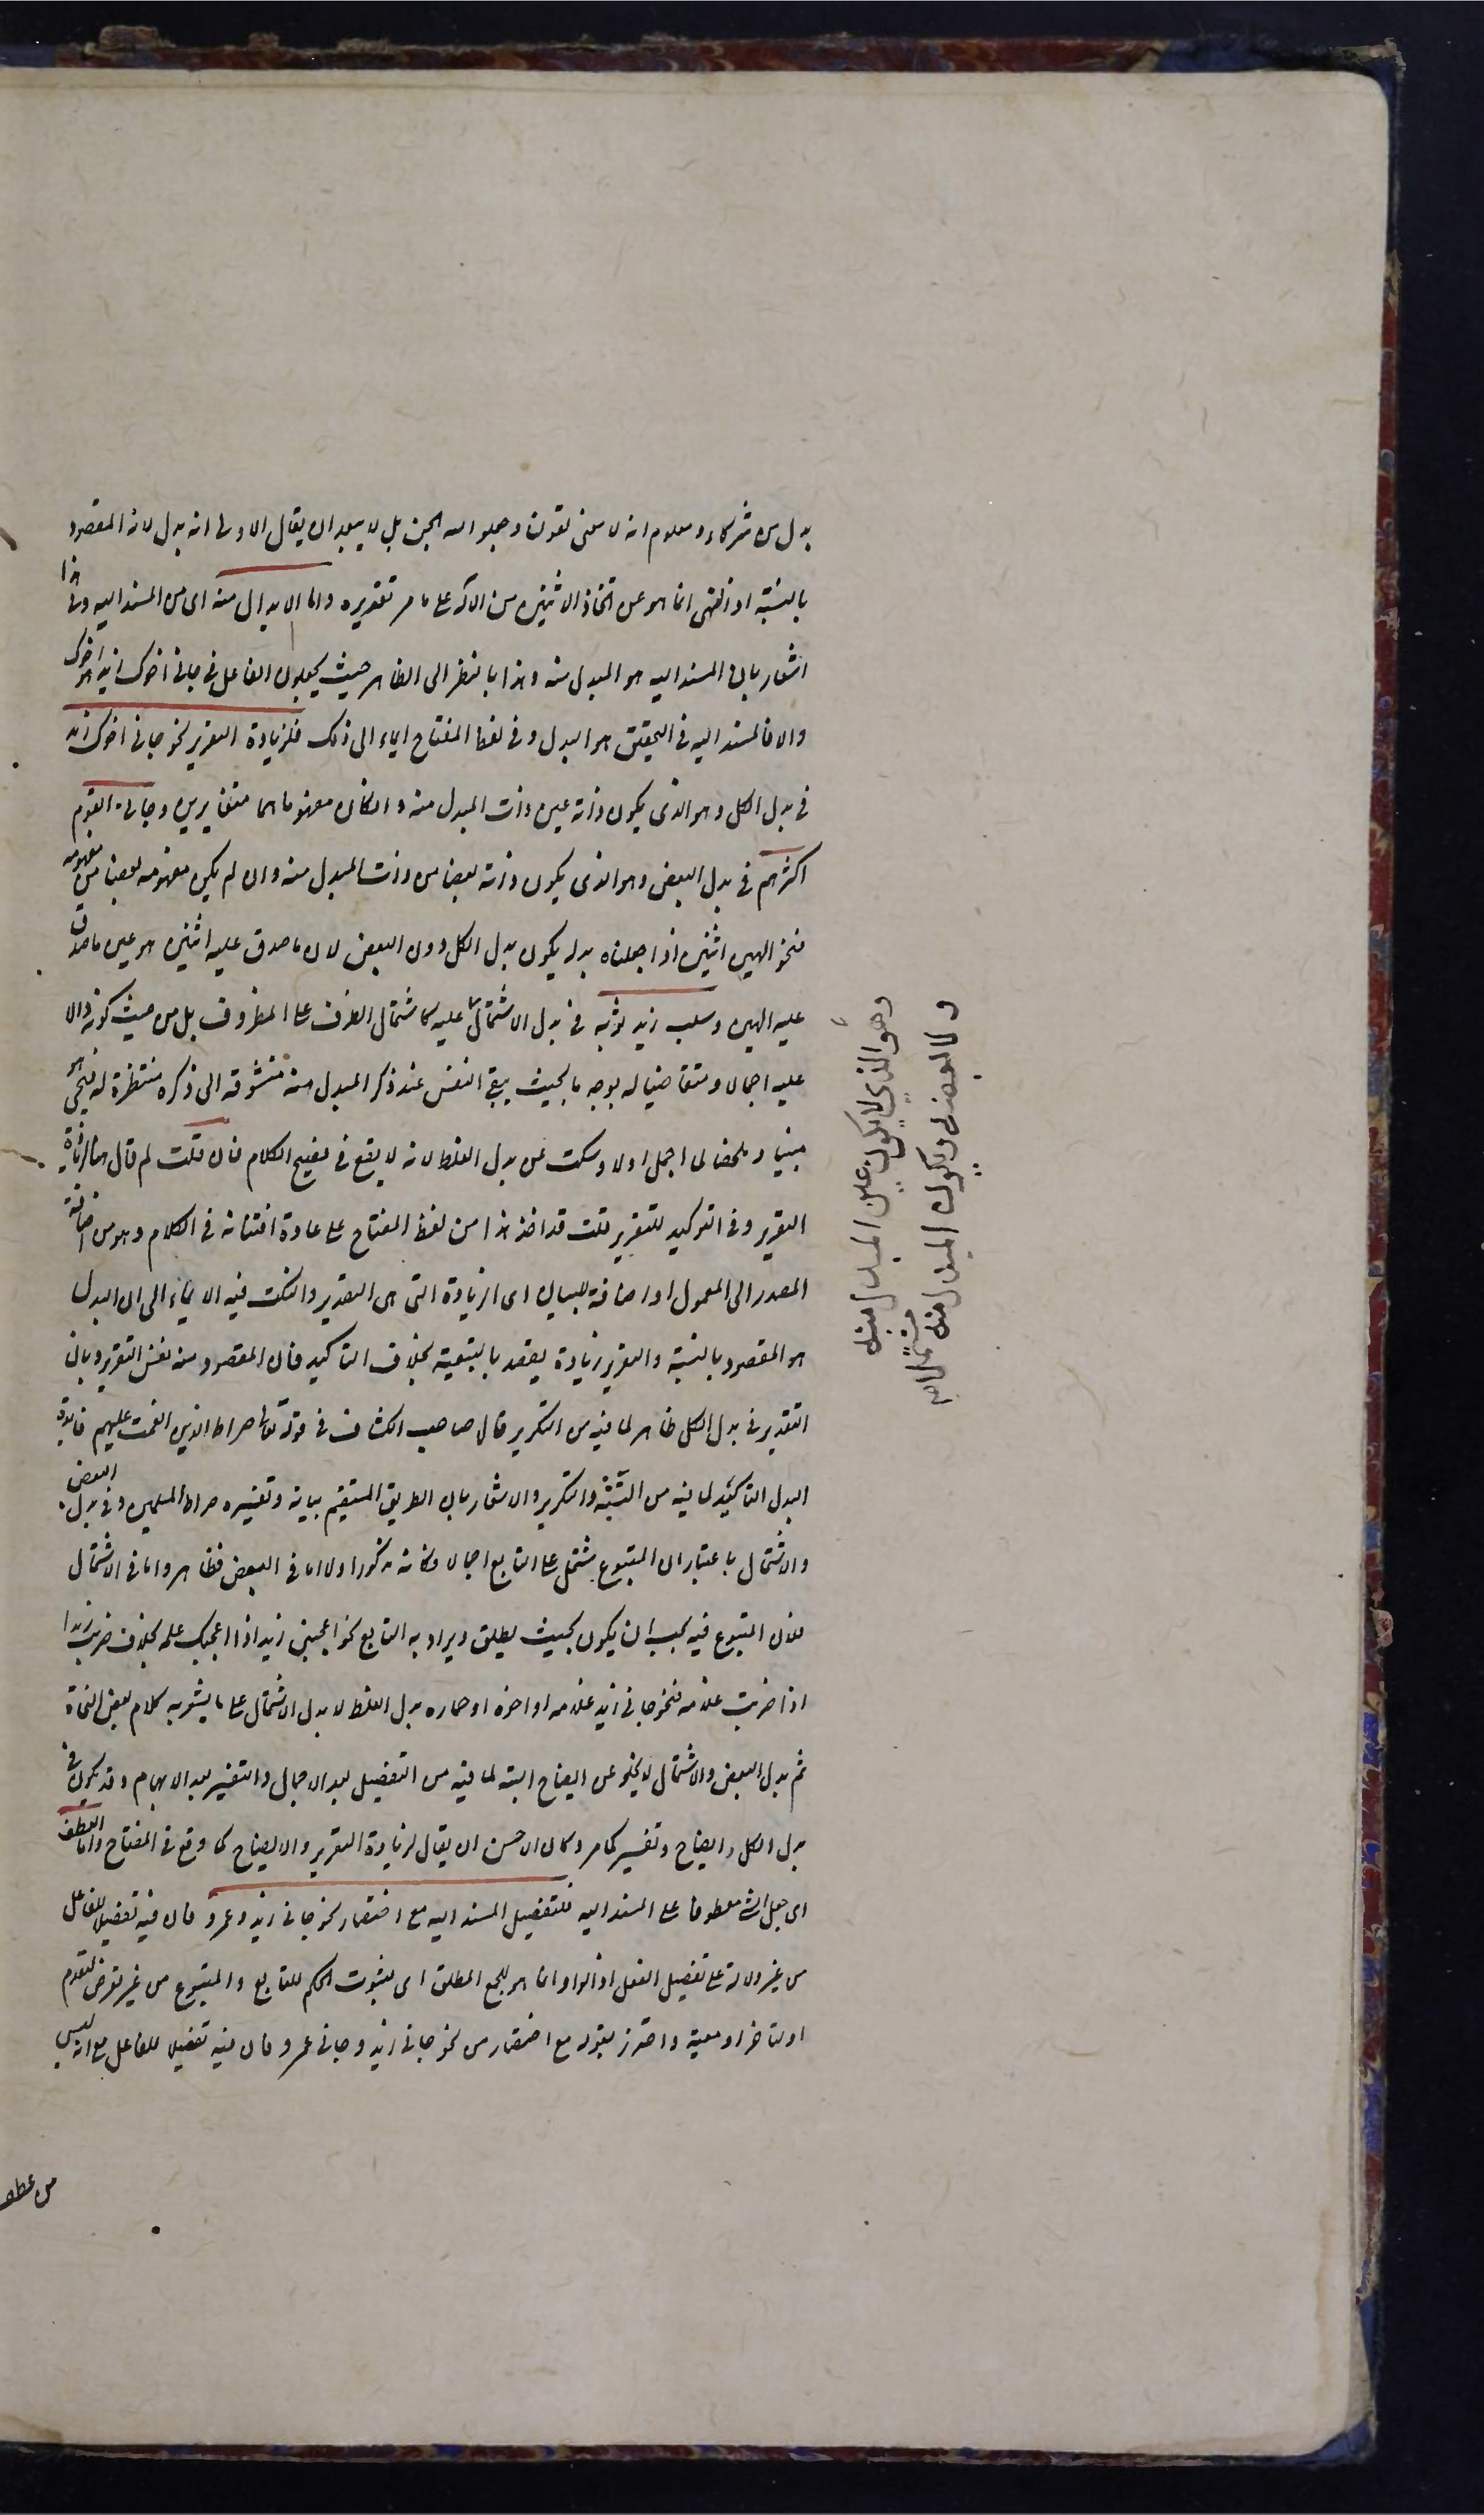 بدل من شركاء ومعلوم انه لا معنى لقولنا وجعلوا لله الجن بل لا يبعد ان يقال الاولى انه بدل لانه المقصود
بالنسبة اذ النهى انما هو عن اتخاذ الاثنين من الاله على ما مر تقديره واما الابدال منه اى من المسند اليه وفى هذا
اشعار بان المسند اليه هو المبدل منه وهذا بالنظر الى الظاهر حيث يجعلون الفاعل فى جانى اخوك زيد هو اخوك
والا فالمسند اليه فى التحقيق هو البدل وفى لفظ المفتاح ايماء الى ذلك فلزيادة التقرير نحو جانى اخوك زيد
فى بدل الكل وهو الذى يكون ذاته عين ذات المبدل منه وان كان مفهوماهما متغايرين وجانى القوم
اكثرهم فى بدل البعض وهو الذى يكون ذاته بعضا من ذات المبدل منه وان لم يكن مفهومه بعضا من مفهومه
فنحو الهين اثنين اذا جعلناه بدلا يكون بدل الكل دون البعض لان ما صدق عليه اثنين هو عين ما صدق
عليه الهين وسلب زيد ثوبه فى بدل الاشتمال عليه كاشتمال الظرف على المظروف بل من حيث كونه دالا
عليه اجمالا ومتقاضيا له بوجه ما بحيث يبقى النفس عند ذكر المبدل منه متشوقة الى ذكره منتظرة له فيجئ هو
مبينا وملخصا لما اجمل اولا وسكت عن بدل الغلط لانه لا يقع فى فصيح الكلام فان قلت لم قال ههنا لزيادة
التقرير وفى التوكيد للتقرير قلت قد اخذ هذا من لفظ المفتاح على عادة افتنانه فى الكلام وهو من اضافة
المصدر الى المعمول او اضافة البيان اى الزيادة التى هى التقرير والنكت فيه الايماء الى ان البدل
هو المقصود بالنسبة والتقرير زيادة يقصد بالتبعية بخلاف التاكيد فان المقصود منه نفس التقرير وبيان
التقرير فى بدل الكل ظاهر لما فيه من التكرير قال صاحب الكشاف فى قوله تعالى صراط الذين انعمت عليهم فايدة
البدل التاكيد لما فيه من التثنية والتكرير والاشعار بان الطريق المستقيم بيانه وتفسيره صراط المسلمين وفى بدل البعض
والاشتمال باعتبار ان المتبوع مشتمل على التابع اجمالا فكانه مذكور اولا اما فى البعض فظاهر واما فى الاشتمال
فلان المتبوع فيه يجب ان يكون بحيث يطلق ويراد به التابع نحو اعجبنى زيد اذا اعجبك علمه بخلاف ضربت زيدا
اذا ضربت غلامه فنحو جانى زيد غلامه او اخوه او حماره بدل الغلط لا بدل الاشتمال على ما يشعر به كلام بعض النحاة
ثم بدل البعض والاشتمال لا يخلو عن ايضاح البتة لما فيه من التفصيل بعد الاجمال والتفسير بعد الابهام وقد يكون فى
بدل الكل ايضاح وتفسير كما مر وكان الاحسن ان يقال لزيادة التقرير والايضاح كما وقع فى المفتاح واما العطف
اى جعل الشئ معطوفا على المسند اليه فلتفصيل المسند اليه مع اختصار نحو جانى زيد وعمرو فان فيه تفصيلا للفاعل
من غير دلالة على تفصيل الفعل اذ الواو انما هو للجمع المطلق اى لثبوت الحكم للتابع والمتبوع من غير تعرض لتقدم
او تاخر او معية واحترز بقوله مع اختصار من نحو جانى زيد وجانى عمرو فان فيه تفصيلا للفاعل مع انه ليس
من عطف
وهو الذى لا يكون عين المبدل منه
ولا بعضه ويكون المبدل منه
مشتملا